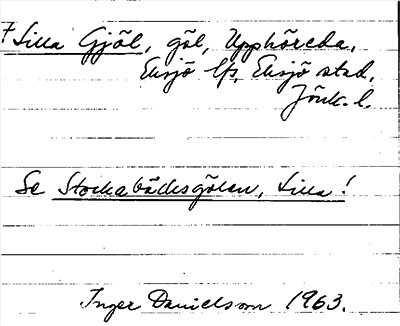 + Lilla Gjöl, göl, Upphöreda,
Eksjö lfs, Eksjö stad,
Jönk. l.
Se Stockabäcksgölen, Lilla!
Inger Danielsson 1963.